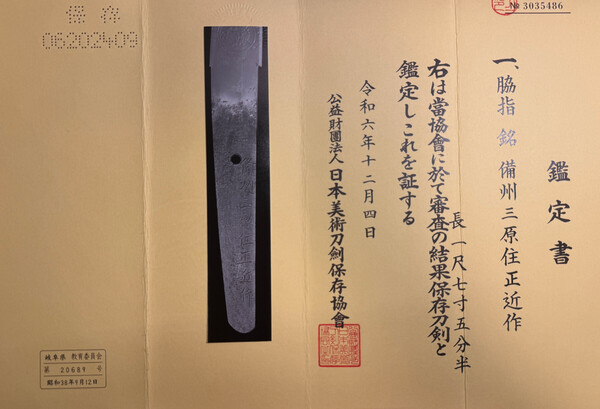 № 3035486
鑑定書
一、脇指 銘 備州三原住正近作
長一尺七寸五分半
右は當協會に於て審査の結果保存刀剣と
鑑定しこれを証する
令和六年十二月四日
公益財團法人 日本美術刀剣保存協會
保存
06202409
岐阜県 教育委員会
第 20689 号
昭和38年9月12日